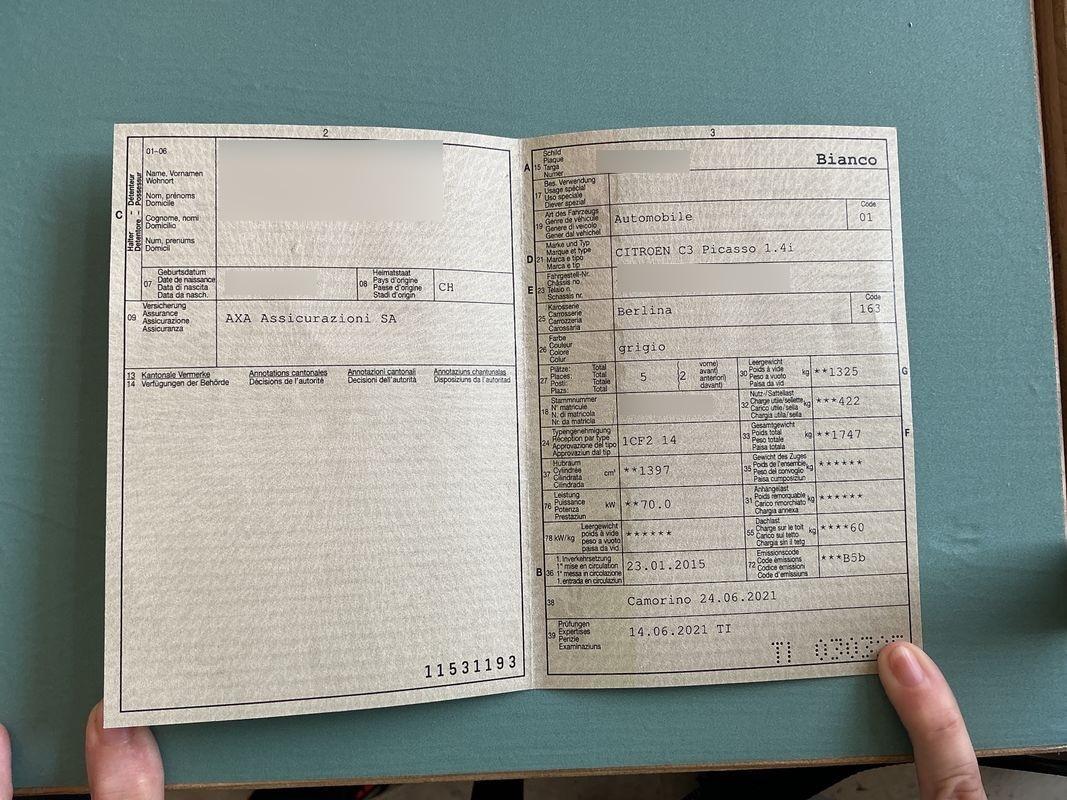 2
01-06
Name, Vornamen
Wohnort
Nom, prénoms
Domicile
Cognome, nomi
Domicilio
Num, prenums
Domicil
C
Halter – Détenteur
Detentore – Possessur
07
Geburtsdatum
Date de naissance
Data di nascita
Data da nasch.
08
Heimatstaat
Pays d'origine
Paese d'origine
Stadi d'origin
CH
09
Versicherung
Assurance
Assicurazione
Assicuranza
AXA Assicurazioni SA
13 Kantonale Vermerke Annotations cantonales Annotazioni cantonali Annotaziuns chantunalas
14 Verfügungen der Behörde Décisions de l'autorité Decisioni dell'autorità Disposiziuns da l'autoritad
11531193
3
A 15
Schild
Plaque
Targa
Numer
Bianco
17
Bes. Verwendung
Usage spécial
Uso speciale
Diever spezial
19
Art des Fahrzeugs
Genre de véhicule
Genere di veicolo
Gener dal vehichel
Automobile
Code
01
D 21
Marke und Typ
Marque et type
Marca e tipo
Marca e tip
CITROËN C3 Picasso 1.4i
E 23
Fahrgestell-Nr.
Châssis no
Telaio n.
Schassis nr.
25
Karosserie
Carrosserie
Carrozzeria
Carossaria
Berlina
Code
163
26
Farbe
Couleur
Colore
Colur
grigio
27
Plätze: Total
Places: Total
Posti: Totale
Plazs: Total
5
2
vorne)
avant)
anteriori)
davant)
30
Leergewicht
Poids à vide
Peso a vuoto
Paisa da vid
kg
**1325
G
18
Stammnummer
N° matricule
N. di matricola
Nr. da matricla
32
Nutz-/Sattellast
Charge utile/sellette
Carico utile/sella
Chargia utila/sella
kg
***422
24
Typengenehmigung
Réception par type
Approvazione del tipo
Approvaziun dal tip
1CF2 14
33
Gesamtgewicht
Poids total
Peso totale
Paisa totala
kg
**1747
F
37
Hubraum
Cylindrée
Cilindrata
Cilindrada
cm³
**1397
35
Gewicht des Zuges
Poids de l'ensemble
Peso del convoglio
Paisa cumposiziun
kg
******
76
Leistung
Puissance
Potenza
Prestaziun
kW
**70.0
31
Anhängelast
Poids remorquable
Carico rimorchiato
Chargia annexa
kg
******
78 kW/kg
Leergewicht
poids à vide
peso a vuoto
paisa da vid
******
55
Dachlast
Charge sur le toit
Carico sul tetto
Chargia sin il tetg
kg
****60
B 36
1. Inverkehrsetzung
1re mise en circulation
1a messa in circolazione
1. entrada en circulaziun
23.01.2015
72
Emissionscode
Code émissions
Codice emissioni
Code d'emissiuns
***B5b
38
Camorino 24.06.2021
39
Prüfungen
Expertises
Perizie
Examinaziuns
14.06.2021 TI
TI